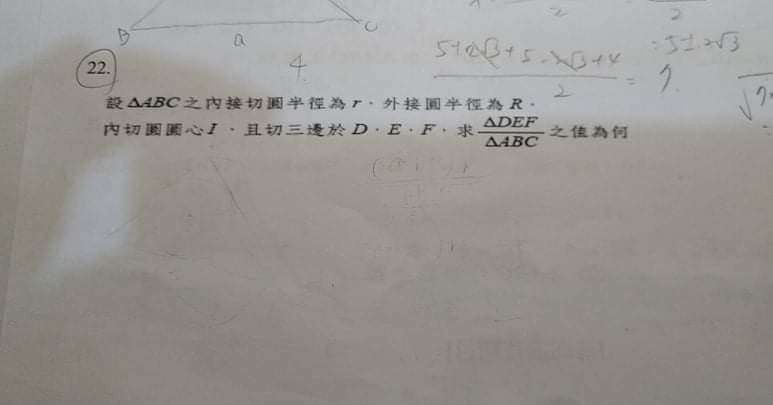 B a C
4
5+2√3+5-2√3+4 / 2 = 7
=5±2√3
2
2
22.
設△ABC之內接切圓半徑為r，外接圓半徑為R，
內切圓圓心I，且切三邊於D，E，F，求 △DEF / △ABC 之值為何